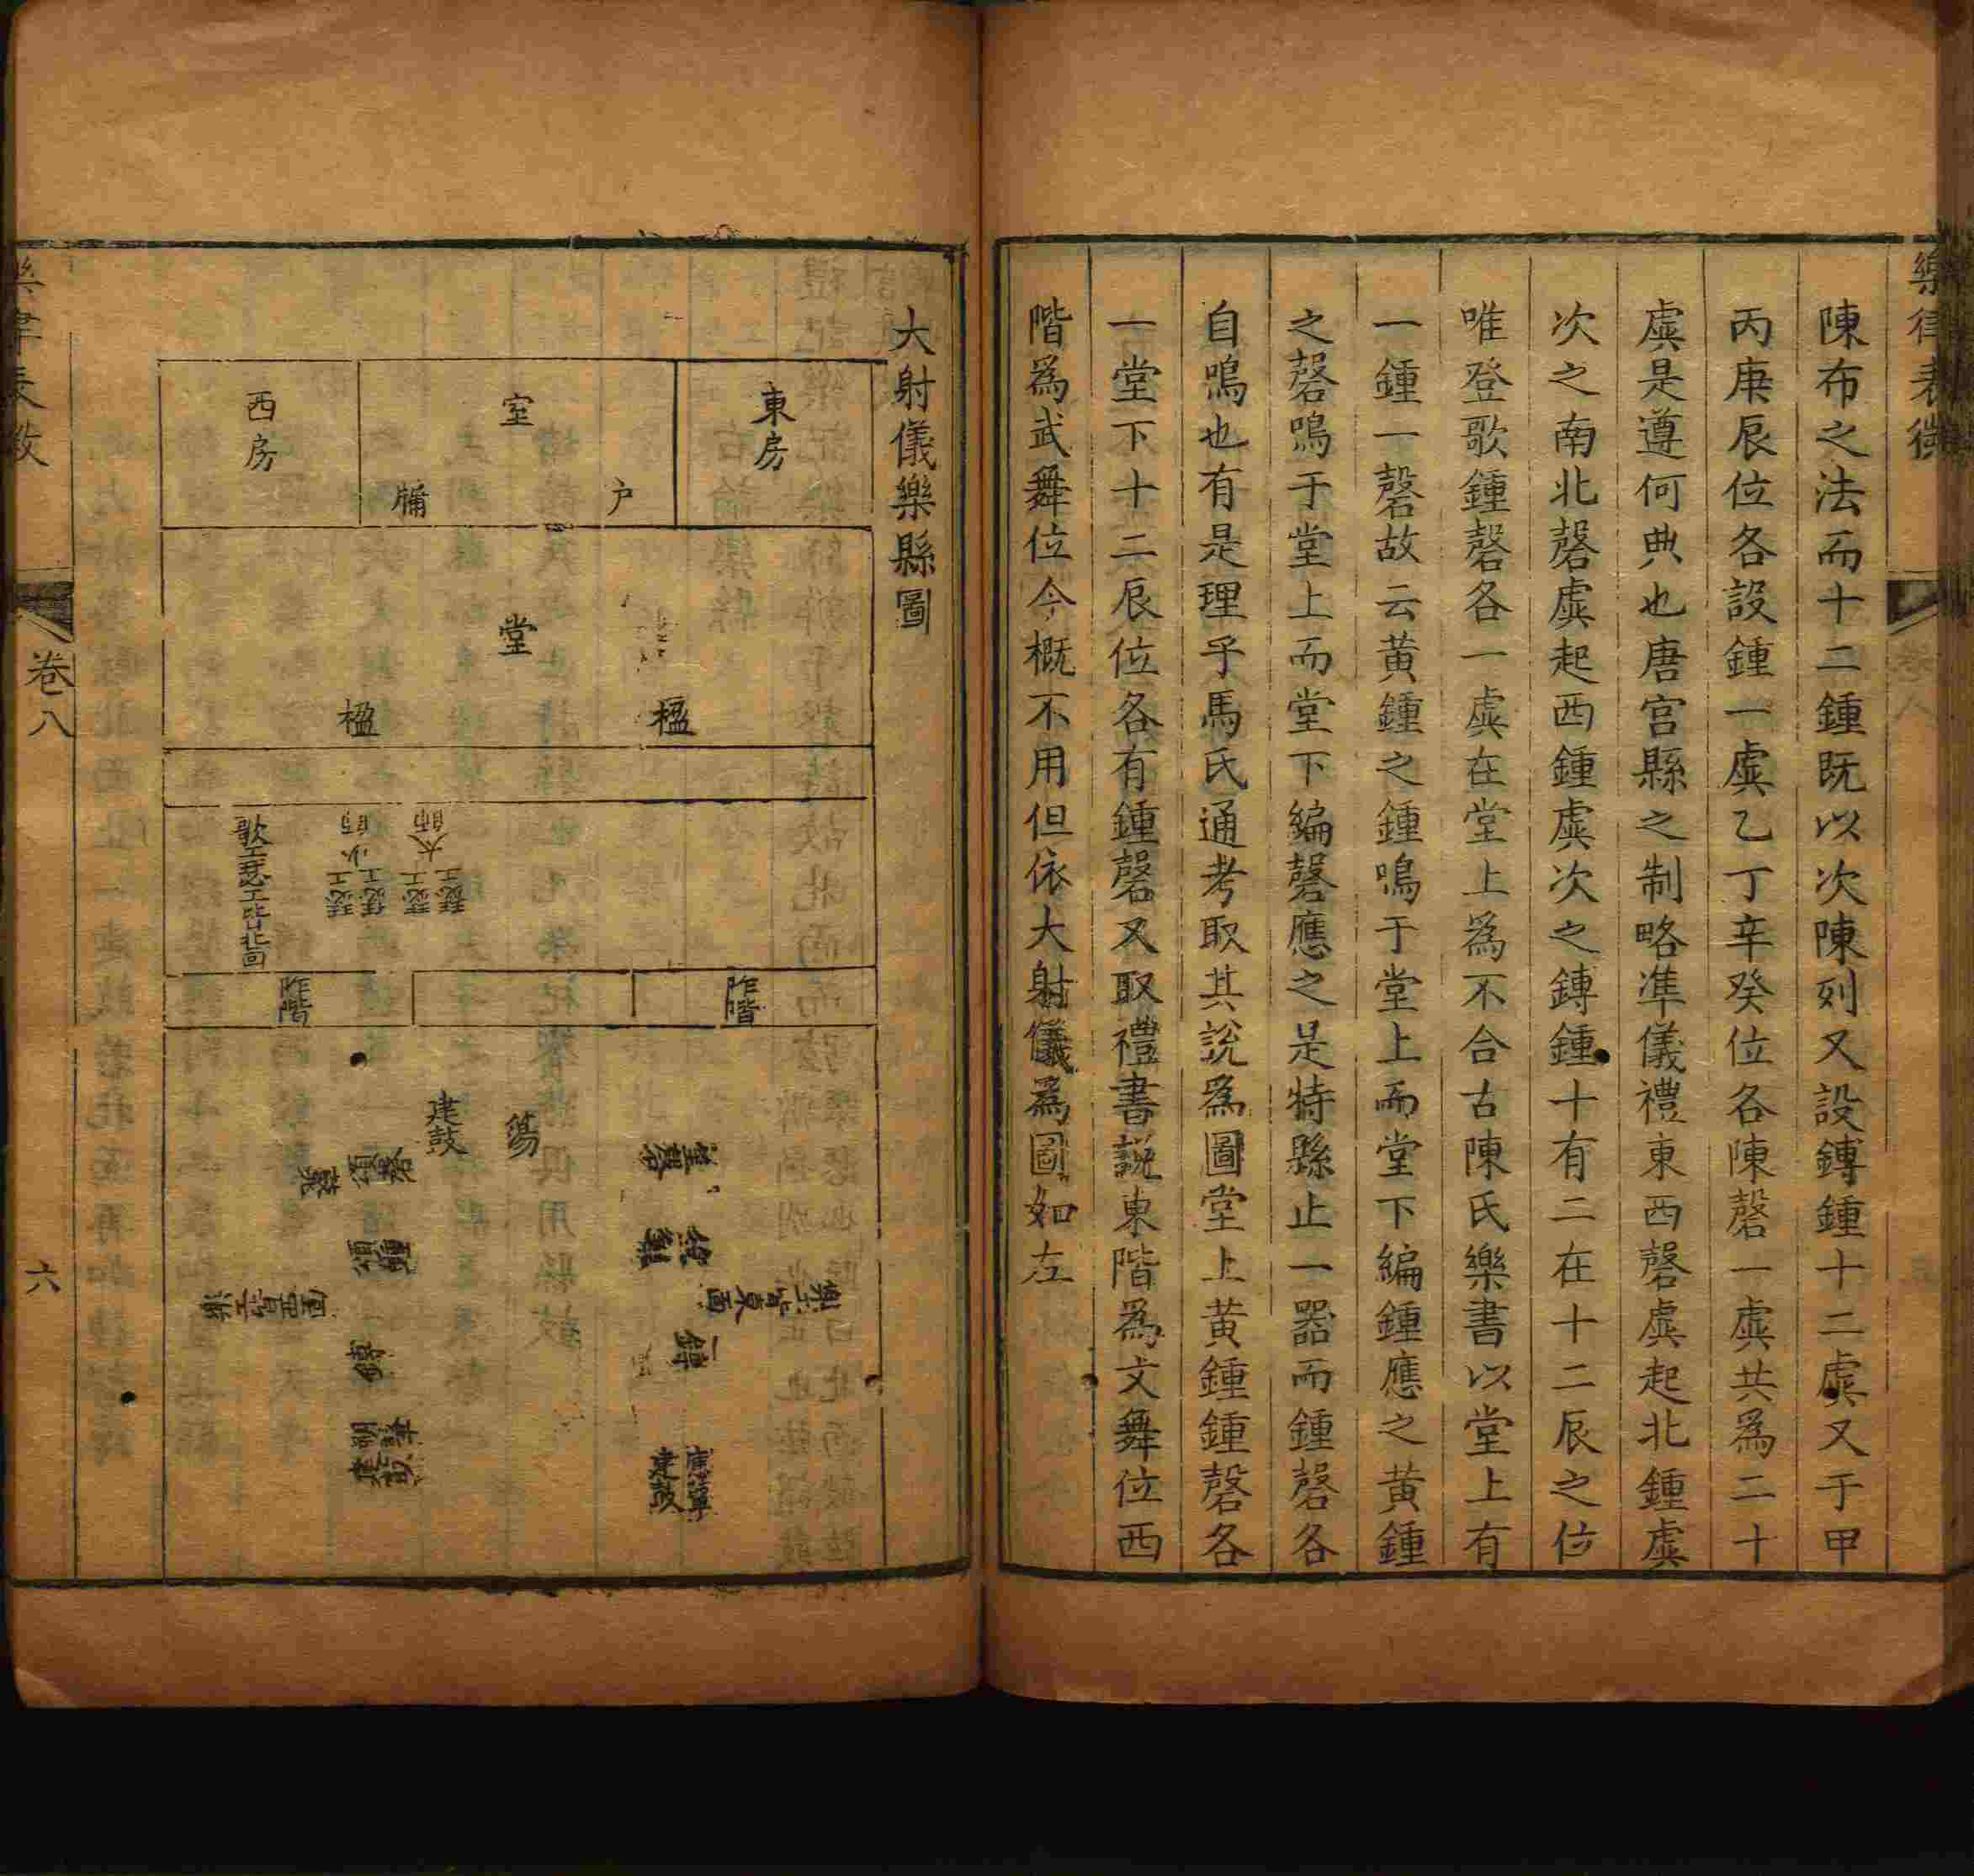 樂律表微
陳布之法而十二鍾既以次陳列又設鏄鍾十二虡又于甲
丙庚辰位各設鍾一虡乙丁辛癸位各陳磬一虡共為二十
虡是遵何典也唐宫縣之制略凖儀禮東西磬虡起北鍾虡
次之南北磬虡起西鍾虡次之鏄鍾十有二在十二辰之位
唯登歌鍾磬各一虡在堂上爲不合古陳氏樂書以堂上有
一鍾一磬故云黄鍾之鍾鳴于堂上而堂下編鍾應之黄鍾
之磬鳴于堂上而堂下編磬應之是特縣止一器而鍾磬各
自鳴也有是理乎馬氏通考取其説爲圖堂上黄鍾鍾磬各
一堂下十二辰位各有鍾磬又取禮書説東階爲文舞位西
階爲武舞位今概不用但依大射儀爲圖如左
大射儀樂縣圖
東房
室
户
牖
西房
堂
楹
楹
大師
瑟工
瑟工
小師
瑟工
瑟工
歌工瑟工皆北面
阼階
阼階
簜
建鼓
頌磬
鼗
頌鍾
鏄
笙磬
笙鍾
鏄
建鼓
樂工皆東面
樂律表微
卷八
六